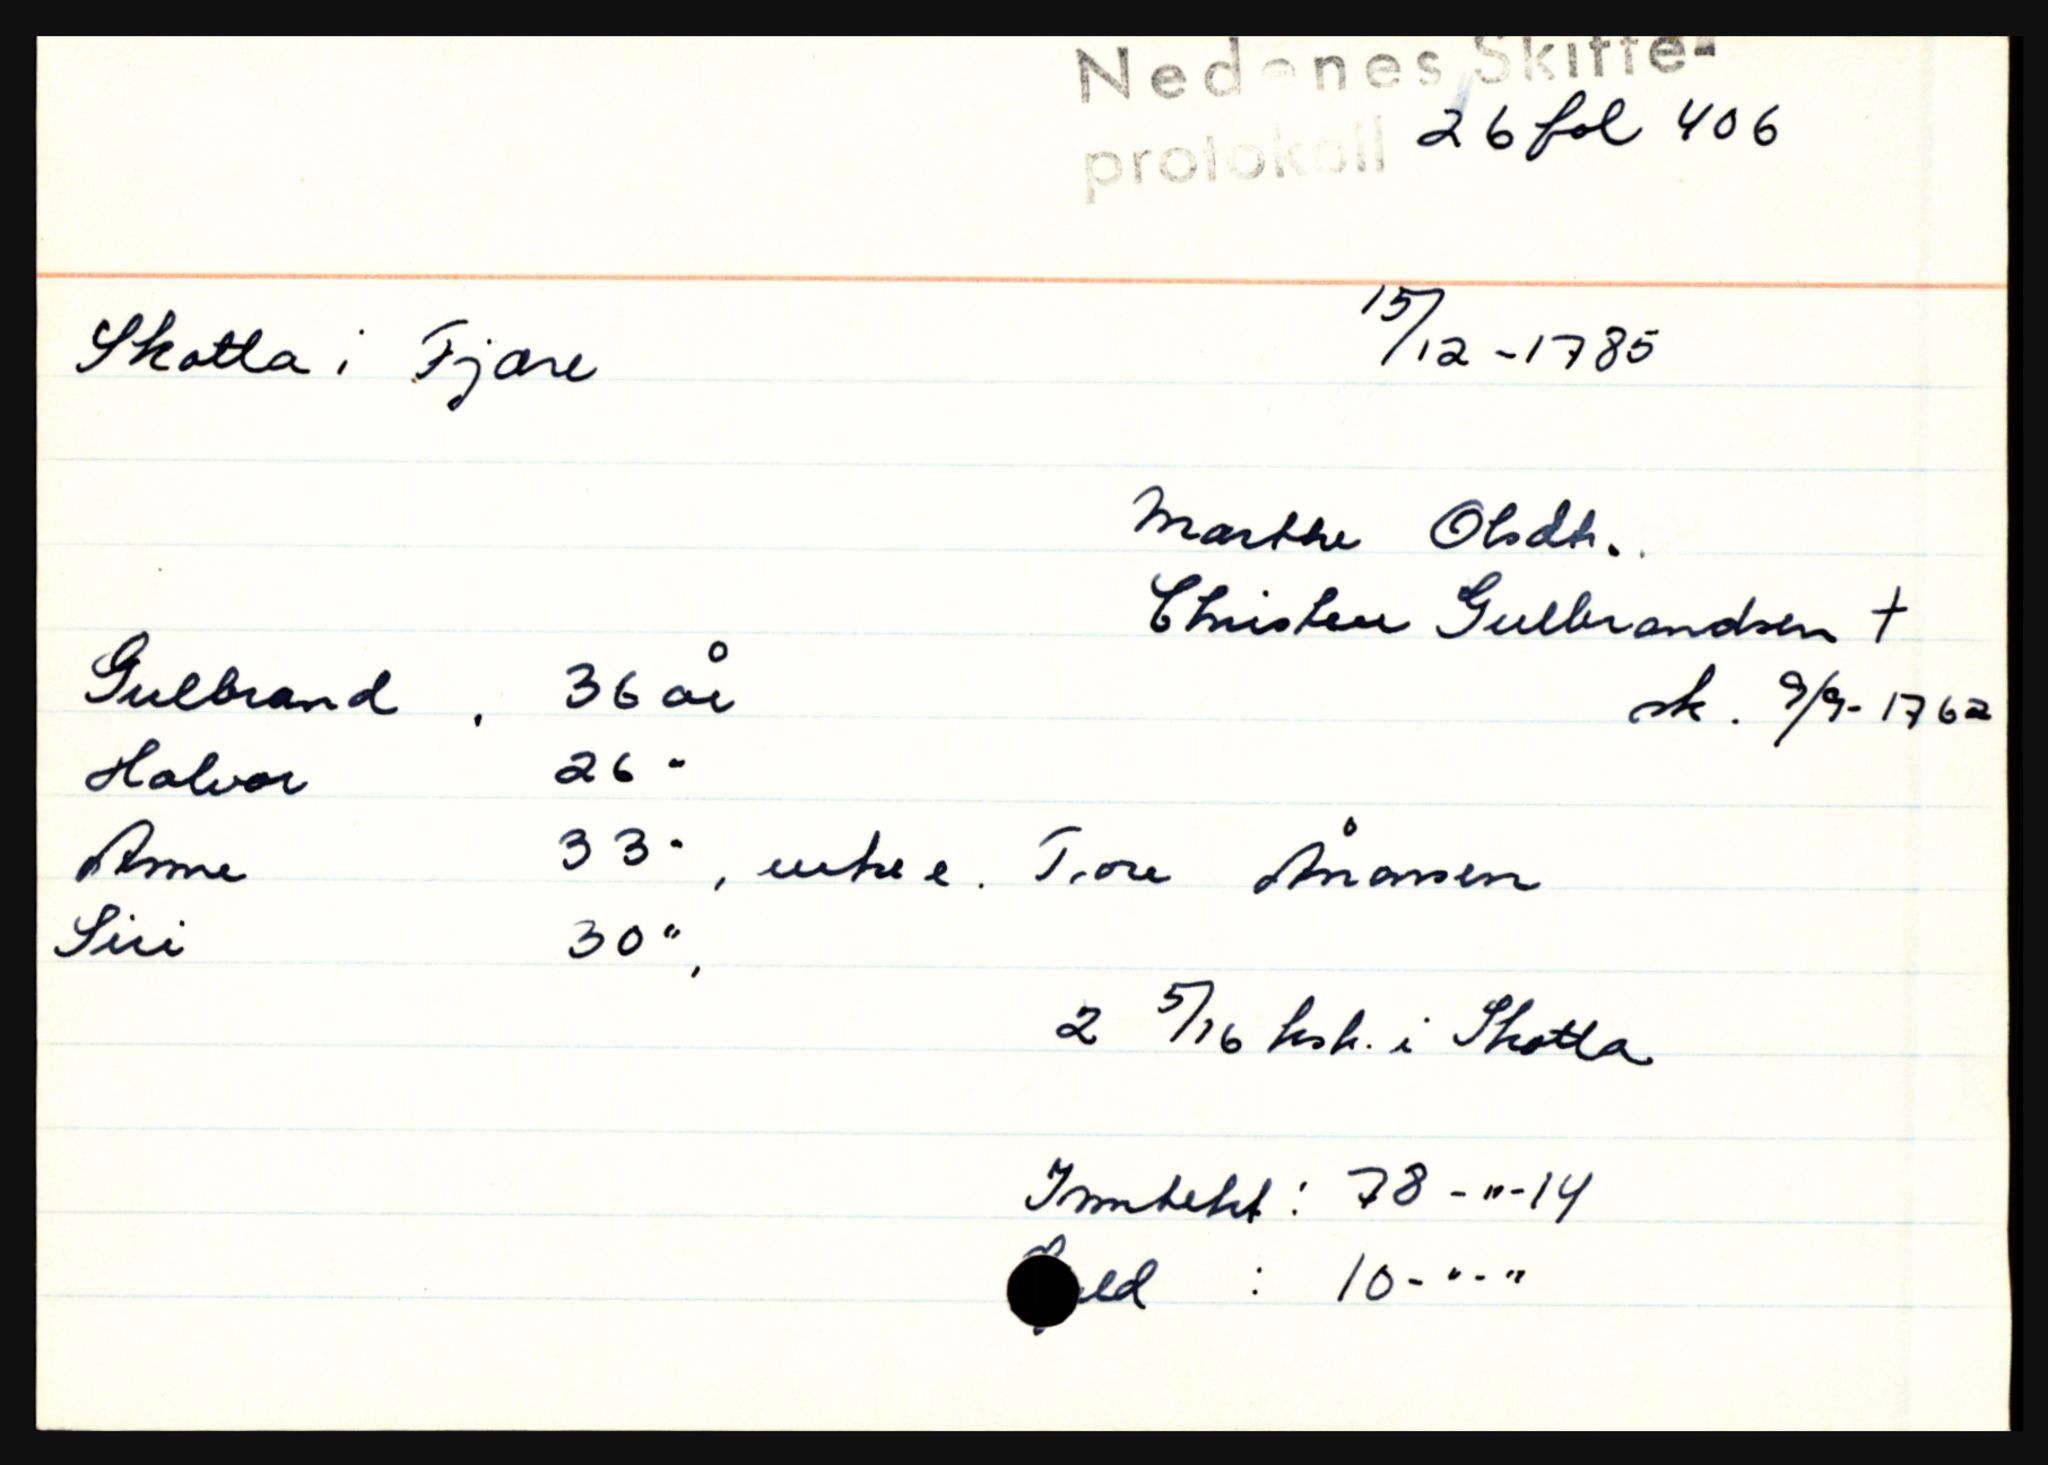 Nedenes Skifte-
protokoll 26 fol 406
Skotta i Fjære 15/12 - 1785
Marthe Olsdtr.
Christen Gulbrandsen †
Gulbrand, 36 år sk. 9/9 - 1762
Halvor 26 "
Anne 33 ", enke e. Tore Ånonsen
Siri 30 ",
2 5/16 ksk. i Skotta
Inntekt : 78 - " - 14
Gjeld : 10 - " - "